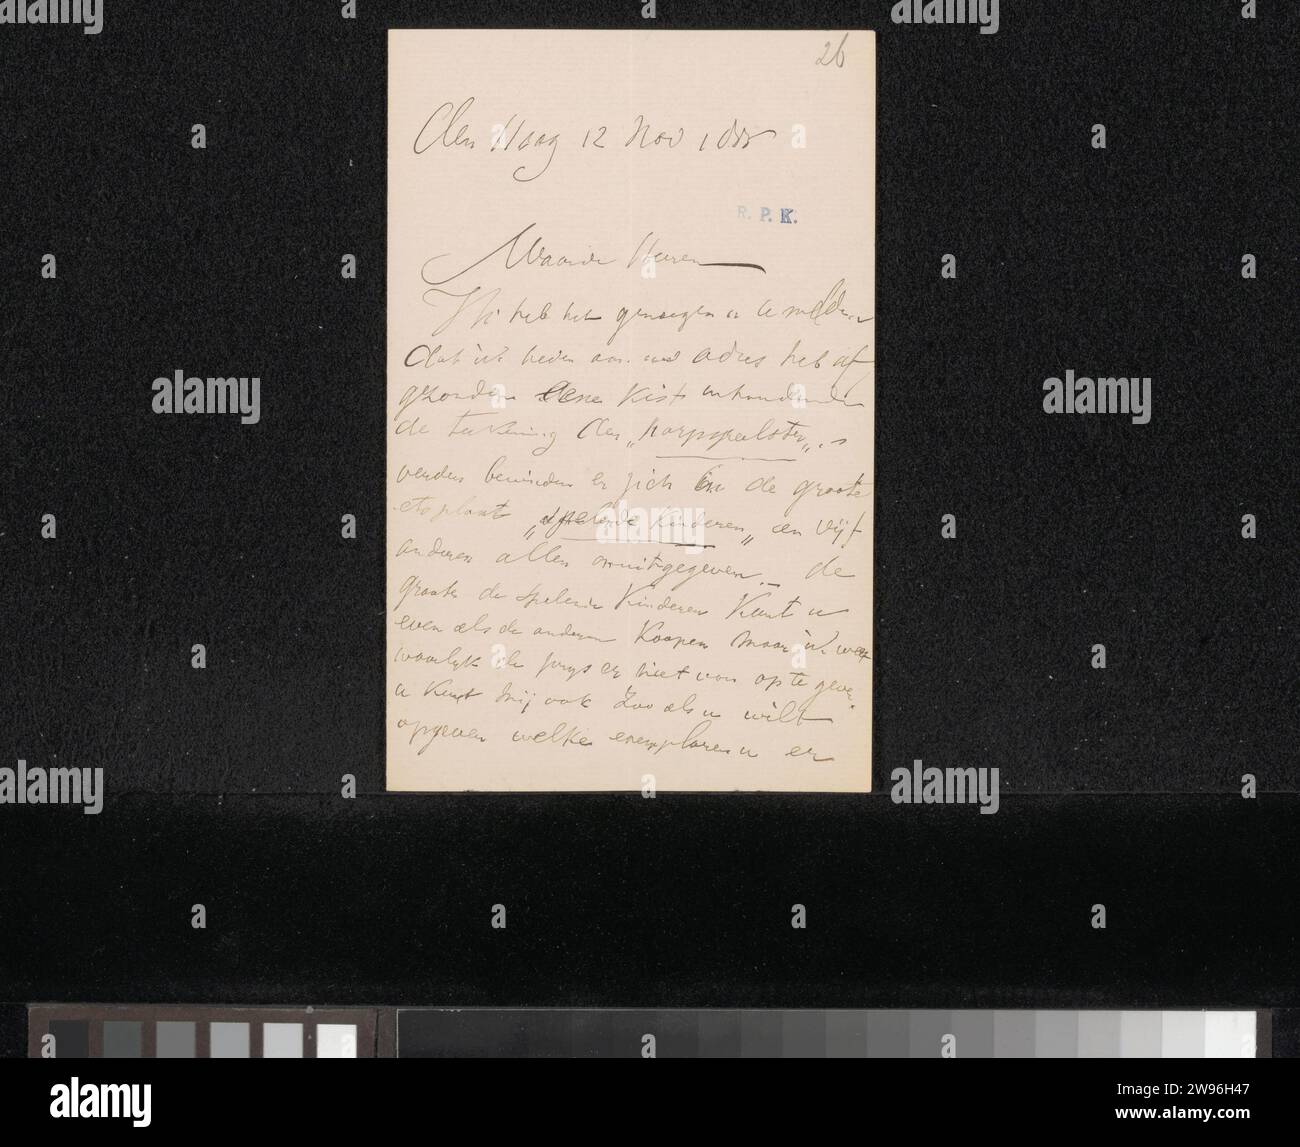 26
Den Haag 12 Nov 1885
R. P. K.
Waarde Heeren
Ik heb het genoegen u te melden
dat ik heden aan uwd adres heb af
gezonden eene kist inhoudende
de teekening der „harpspeelster„
verders bevinden er zich in de groote
etsplaat „spelende kinderen„ en vijf
anderen allen onuitgegeven. – de
groote de spelende kinderen kunt u
even als de anderen koopen maar ik weet
waarlijk de prijs er niet van op te geven
u kunt mij ook zoo als u wilt
opgeven welke exemplaren u er
alamy
Image ID: 2W96H47
www.alamy.com